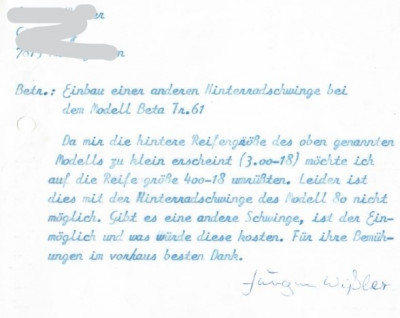 er
Betr.: Einbau einer anderen Hinterradschwinge bei
dem Modell Beta Tr.61
Da mir die hintere Reifengröße des oben genannten
Modells zu klein erscheint (3.00-18) möchte ich
auf die Reifegröße 400-18 umrüßten. Leider ist
dies mit der Hinterradschwinge des Modell 80 nicht
möglich. Gibt es eine andere Schwinge, ist der Ein-
möglich und was würde diese kosten. Für ihre Bemüh-
ungen im vorhaus besten Dank.
Jürgen Wißler